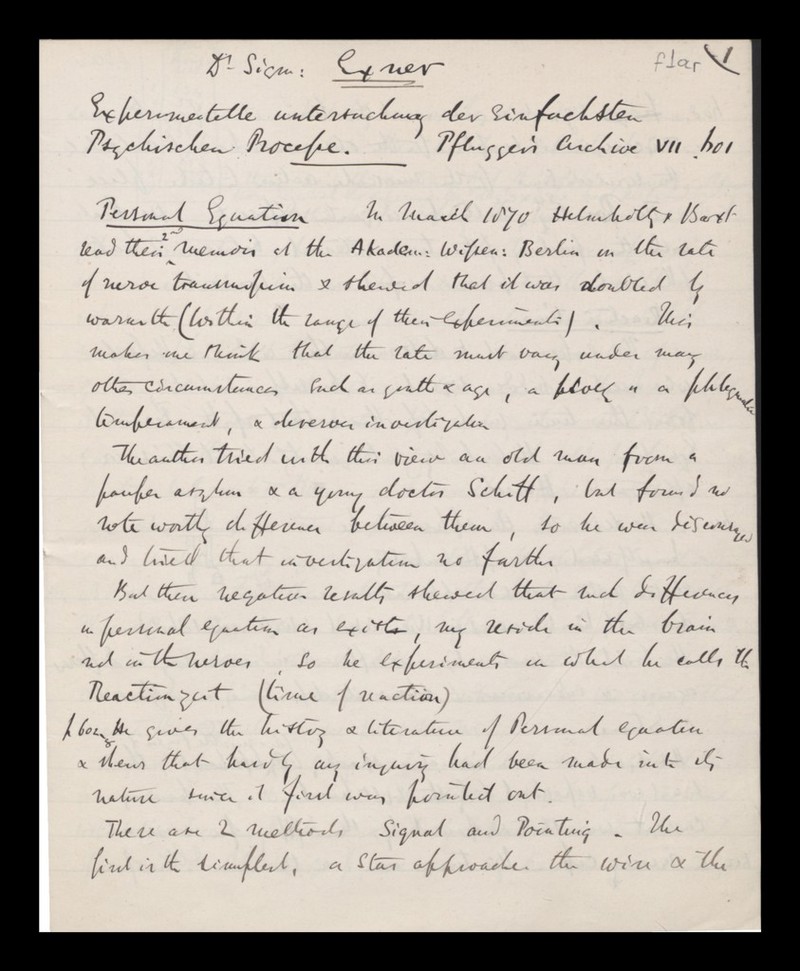 Dr Sigm: Exner
f1ar 1
Experimentelle untersuchung der Einfachsten
Psychischen Processe. Pfluggers Archive VII 601
Personal Equation In March 1870 Helmholtz & Baxt
read their 2nd memoir at the Akadem: Wissen: Berlin on the rate
of nerve transmission & shewed that it was doubled by
warmth (within the range of their experiments). This
makes me think that the rate must vary under many
other circumstances such as youth & age, a lively or a phlegmatic
temperament, & deserves investigation
The author tried with this view an old man from a
pauper asylum & a young doctor Schiff, but found no
note worthy difference between them, so he was discouraged
and tried that investigation no further
But these negative results shewed that such differences
in personal equation as exists, may reside in the brain
not in the nerves, so he experiments on what he calls the
Reactionzeit (time of reaction)
p 602 He gives the history & literature of Personal equation
& shews that hardly any inquiry had been made into its
nature since it first was pointed out.
There are 2 methods Signal and Pointing. The
first is the simplest, a Star approaches the wire & the